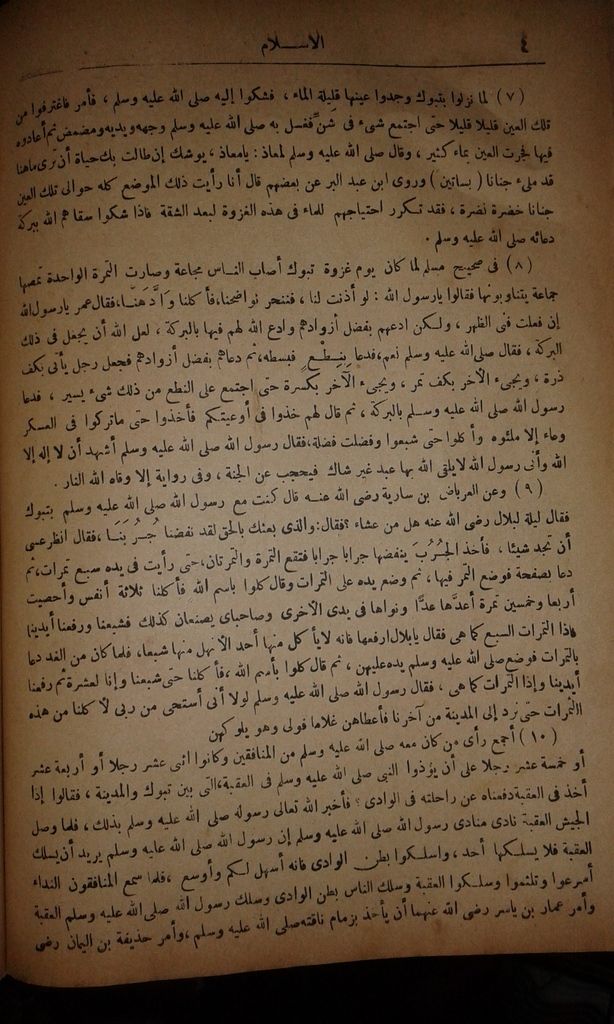 ٤
الاســلام
(٧) لما نزلوا بتبوك وجدوا عينها قليلة الماء ، فشكوا إليه صلى الله عليه وسلم ، فأمر فاغترفوا من
تلك العين قليلا قليلا حتى اجتمع شىء فى شنّ فغسل به صلى الله عليه وسلم وجهه ويديه ومضمض ثم أعادوه
فيها فجرت العين بماء كثير ، وقال صلى الله عليه وسلم لمعاذ : يامعاذ ، يوشك إن طالت بك حياة أن ترى ماهنا
قد ملىء جنانا (بساتين) وروى ابن عبد البر عن بعضهم قال أنا رأيت ذلك الموضع كله حوالى تلك العين
جنانا خضرة نضرة ، فقد تكرر احتياجهم للماء فى هذه الغزوة لبعد الشقة فاذا شكوا سقاهم الله ببركة
دعائه صلى الله عليه وسلم .
(٨) فى صحيح مسلم لما كان يوم غزوة تبوك أصاب الناس مجاعة وصارت التمرة الواحدة تمصها
جماعة يتناوبونها فقالوا يارسول الله : لو أذنت لنا ، فننحر نواضحنا، فأكلنا وَادَّهَنَّا، فقال عمر يارسول الله
إن فعلت فنى الظهر ، ولكن ادعهم بفضل أزوادهم وادع الله لهم فيها بالبركة ، لعل الله أن يجعل فى ذلك
البركة ، فقال صلى الله عليه وسلم نعم، فدعا بِنِطْعٍ فبسطه، ثم دعاهم بفضل أزوادهم فجعل رجل يأتى بكف
ذرة ، ويجىء الآخر بكف تمر ، ويجىء الآخر بكسرة حتى اجتمع على النطع من ذلك شىء يسير ، فدعا
رسول الله صلى الله عليه وسلم بالبركة ، ثم قال لهم خذوا فى أوعيتكم فأخذوا حتى ماتركوا فى العسكر
وعاء إلا ملئوه وأكلوا حتى شبعوا وفضلت فضلة، فقال رسول الله صلى الله عليه وسلم أشهد أن لا إله إلا
الله وأنى رسول الله لايلقى الله بها عبد غير شاك فيحجب عن الجنة ، وفى رواية إلا وقاه الله النار .
(٩) وعن العرباض بن سارية رضى الله عنه قال كنت مع رسول الله صلى الله عليه وسلم بتبوك
فقال ليلة لبلال رضى الله عنه هل من عشاء ؟ فقال : والذى بعثك بالحق لقد نفضنا جُرُبَنَا ، فقال انظر عسى
أن تجد شيئا ، فأخذ الجُرُبَ ينفضها جرابا جرابا فتقع التمرة والتمرتان، حتى رأيت فى يده سبع تمرات، ثم
دعا بصفحة فوضع التمر فيها ، ثم وضع يده على التمرات وقال كلوا باسم الله فأكلنا ثلاثة أنفس وأحصيت
أربعا وخمسين تمرة أعدها عدًّا ونواها فى يدى الأخرى وصاحباى يصنعان كذلك فشبعنا ورفعنا أيدينا
فاذا التمرات السبع كما هى فقال يابلال ارفعها فانه لايأكل منها أحد الا نهل منها شبعا، فلما كان من الغد دعا
بالتمرات فوضع صلى الله عليه وسلم يده عليهن ، ثم قال كلوا بأسم الله ، فأكلنا حتى شبعنا وإنا لعشرة ثم رفعنا
أيدينا وإذا التمرات كما هى ، فقال رسول الله صلى الله عليه وسلم لولا أنى أستحى من ربى لأ كلنا من هذه
التمرات حتى نرد إلى المدينة من آخرنا فأعطاهن غلاما فولى وهو يلوكهن
(١٠) أجمع رأى من كان معه صلى الله عليه وسلم من المنافقين وكانوا اثنى عشر رجلا أو أربعة عشر
أو خمسة عشر رجلا على أن يؤذوا النبى صلى الله عليه وسلم فى العقبة، التى بين تبوك والمدينة ، فقالوا إذا
أخذ فى العقبة دفعناه عن راحلته فى الوادى ؟ فأخبر الله تعالى رسوله صلى الله عليه وسلم بذلك ، فلما وصل
الجيش العقبة نادى منادى رسول الله صلى الله عليه وسلم إن رسول الله صلى الله عليه وسلم يريد أن يسلك
العقبة فلا يسلكها أحد ، واسلكوا بطن الوادى فانه أسهل لكم وأوسع ، فلما سمع المنافقون النداء
أسرعوا وتلثموا وسلكوا العقبة وسلك الناس بطن الوادى وسلك رسول الله صلى الله عليه وسلم العقبة
وأمر عمار بن ياسر رضى الله عنهما أن يأخذ بزمام ناقته صلى الله عليه وسلم ، وأمر حذيفة بن اليمان رضى